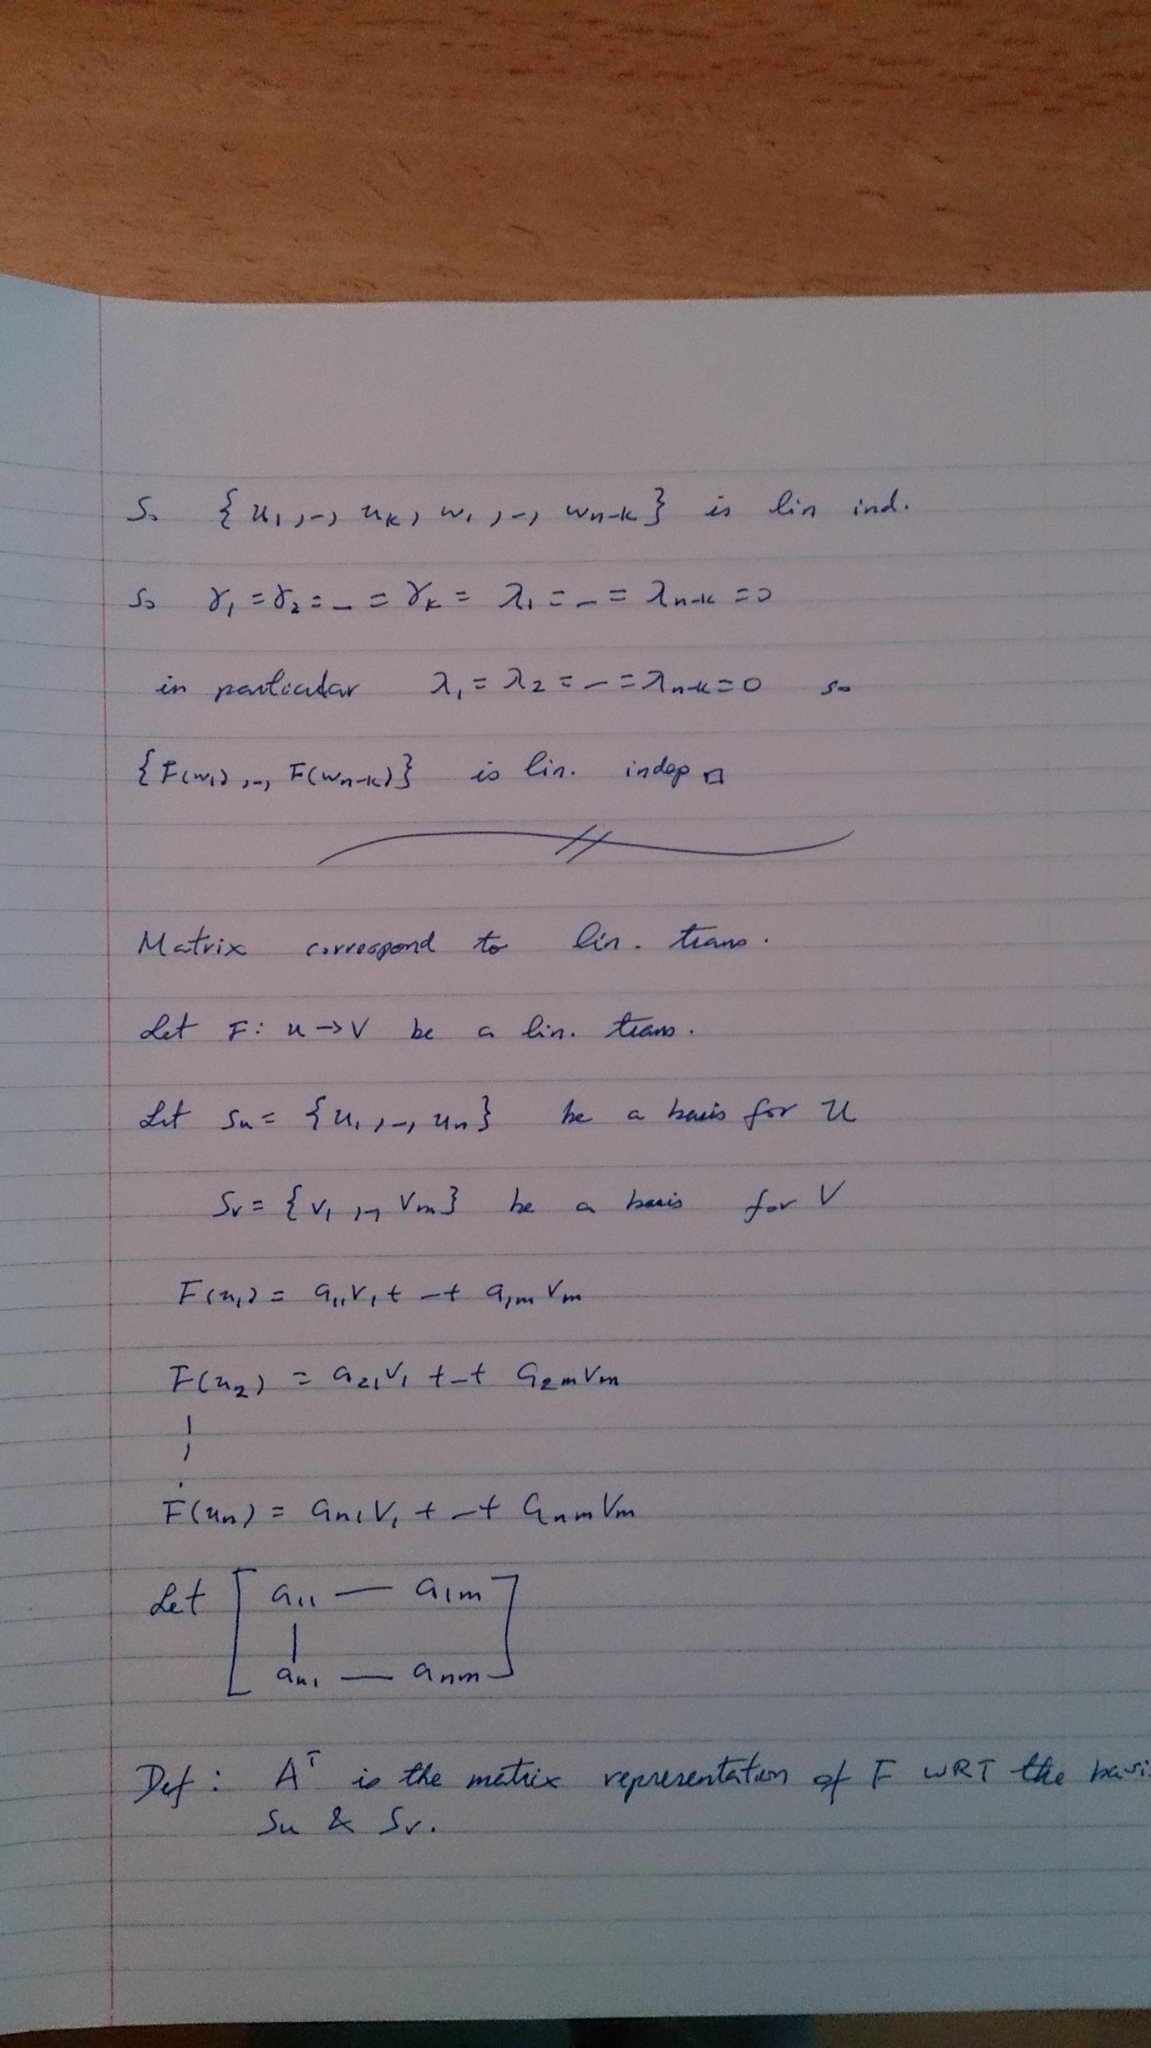 So {u₁,-, uₖ, w₁,-, wₙ₋ₖ} is lin ind.
So γ₁ = γ₂ = - = γₖ = λ₁ = - = λₙ₋ₖ = 0
in particular λ₁ = λ₂ = - = λₙ₋ₖ = 0 so
{F(w₁),-, F(wₙ₋ₖ)} is lin. indep □
Matrix correspond to lin. trans.
Let F: U → V be a lin. trans.
Let Sᵤ = {u₁,-, uₙ} be a basis for U
Sᵥ = {v₁,-, vₘ} be a basis for V
F(u₁) = a₁₁v₁ + - + a₁ₘvₘ
F(u₂) = a₂₁v₁ + - + a₂ₘvₘ
F(uₙ) = aₙ₁v₁ + - + aₙₘvₘ
Let [ a₁₁ — a₁ₘ ]
[ aₙ₁ — aₙₘ ]
Def: Aᵀ is the matrix representation of F WRT the basi
Sᵤ & Sᵥ.